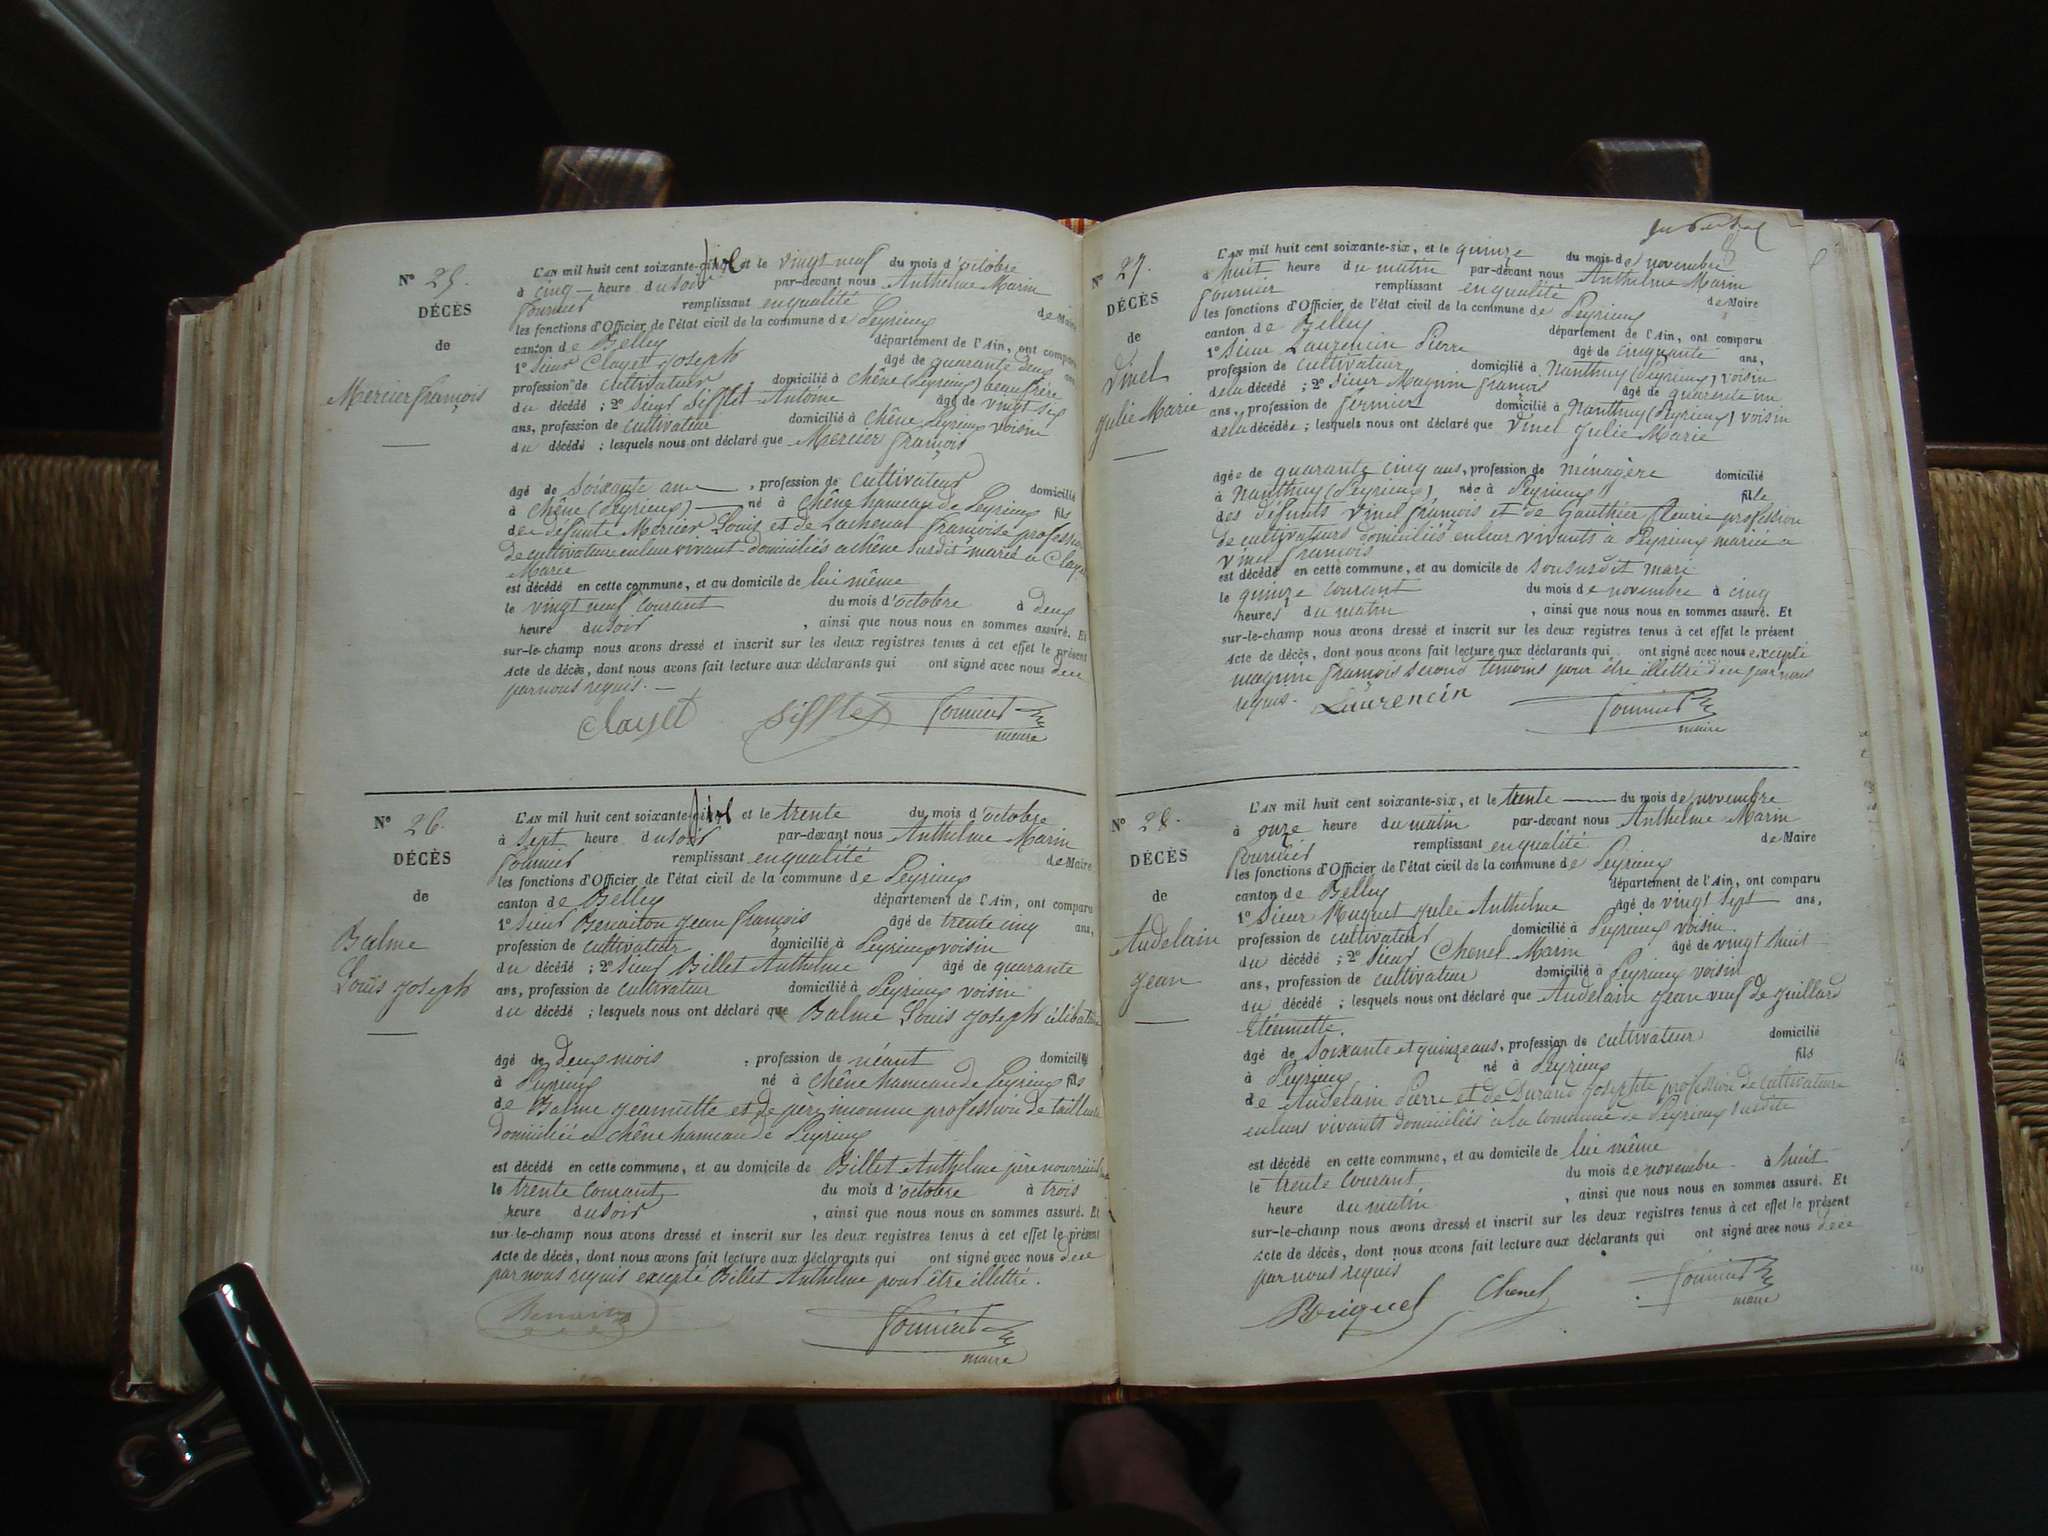 N° 25.
DÉCÈS
de
Mercier françois
L'AN mil huit cent soixante-six et le vingt neuf du mois d'octobre
à cinq heure du soir par-devant nous Anthelme Marin
fournier remplissant en qualité de Maire
les fonctions d'Officier de l'état civil de la commune de Peyrieux
canton de Belley département de l'Ain, ont comparu
1° Sieur Clayet Joseph âgé de quarante deux ans
profession de cultivateur domicilié à Chêne (Peyrieux) beaufrère
du décédé ; 2° Sieur Sifflet Antoine âgé de vingt six
ans, profession de cultivateur domicilié à Chêne Peyrieux voisin
du décédé ; lesquels nous ont déclaré que Mercier
françois
âgé de Soixante ans, profession de cultivateur domicilié
à Chêne (Peyrieux) né à Chêne hameau de Peyrieux fils
de défunts Mercier Louis et de Lachenal françoise profession
de cultivature en leur vivant domiciliés a Chêne Susdit marié a Clayet
Marie
est décédé en cette commune, et au domicile de lui même
le vingt neuf courant du mois d'octobre à deux
heure du soir, ainsi que nous nous en sommes assuré. Et
sur-le-champ nous avons dressé et inscrit sur les deux registres tenus à cet effet le présent
Acte de décès, dont nous avons fait lecture aux déclarants qui ont signé avec nous dece
par nous requis.
Clayet Sifflet fournier
maire
N° 26.
DÉCÈS
de
Balme
Louis Joseph
L'AN mil huit cent soixante-six et le trente du mois d'octobre
à sept heure du soir par-devant nous Anthelme Marin
fournier remplissant en qualité de Maire
les fonctions d'Officier de l'état civil de la commune de Peyrieux
canton de Belley département de l'Ain, ont comparu
1° Sieur Benaiton Jean françois âgé de trente cinq ans,
profession de cultivateur domicilié à Peyrieux voisin
du décédé ; 2° Sieur Billet Anthelme âgé de quarante
ans, profession de cultivateur domicilié à Peyrieux voisin
du décédé ; lesquels nous ont déclaré que Balme Louis Joseph célibataire
âgé de deux mois, profession de néant domicilié
à Peyrieux né à Chêne hameau de Peyrieux fils
de Balme Jeannette et de père inconnu profession de tailleuse
domiciliée a Chêne hameau de Peyrieux
est décédé en cette commune, et au domicile de Billet Anthelme père nourricier
le trente courant du mois d'octobre à trois
heure du soir, ainsi que nous nous en sommes assuré. Et
sur-le-champ nous avons dressé et inscrit sur les deux registres tenus à cet effet le présent
Acte de décès, dont nous avons fait lecture aux déclarants qui ont signé avec nous dece
par nous requis excepté Billet Anthelme pour être illettré.
fournier
maire
N° 27.
DÉCÈS
de
Vinel
Julie Marie
L'AN mil huit cent soixante-six, et le quinze du mois de novembre
à huit heure du matin par-devant nous Anthelme Marin
fournier remplissant en qualité de Maire
les fonctions d'Officier de l'état civil de la commune de Peyrieux
canton de Belley département de l'Ain, ont comparu
1° Sieur Laurencin Pierre âgé de cinquante ans,
profession de cultivateur domicilié à Nanthuy (Peyrieux) voisin
dela décédé ; 2° Sieur Magnin françois âgé de quarante un
ans, profession de fermier domicilié à Nanthuy (Peyrieux) voisin
dela décédée ; lesquels nous ont déclaré que Vinel Julie Marie
âgée de quarante cinq ans, profession de ménagère domicilié
à Nanthuy (Peyrieux), née à Peyrieux fille
des défunts Vinel françois et de Gauthier fleurie profession
de cultivateurs domiciliés en leur vivants à Peyrieux mariée a
Vinel françois
est décédé en cette commune, et au domicile de son susdit mari
le quinze courant du mois de novembre à cinq
heures du matin, ainsi que nous nous en sommes assuré. Et
sur-le-champ nous avons dressé et inscrit sur les deux registres tenus à cet effet le présent
Acte de décès, dont nous avons fait lecture aux déclarants qui ont signé avec nous excepté
magnin françois second temoins pour être illettré dece par nous
requis. Laurencin fournier
maire
N° 28.
DÉCÈS
de
Audelain
Jean
L'AN mil huit cent soixante-six, et le trente du mois de novembre
à onze heure du matin par-devant nous Anthelme Marin
fournier remplissant en qualité de Maire
les fonctions d'Officier de l'état civil de la commune de Peyrieux
canton de Belley département de l'Ain, ont comparu
1° Sieur Huguet Jules Anthelme âgé de vingt sept ans,
profession de cultivateur domicilié à Peyrieux voisin
du décédé ; 2° Sieur Chenel Marin âgé de vingt huit
ans, profession de cultivateur domicilié à Peyrieux voisin
du décédé ; lesquels nous ont déclaré que Audelain Jean veuf de Juillard
Etiennette.
âgé de Soixante et quinze ans, profession de cultivateur domicilié
à Peyrieux né à Peyrieux fils
de Audelain Pierre et de Durand Josephte profession de cultivature
en leurs vivants domiciliés à la commune de Peyrieux susdite
est décédé en cette commune, et au domicile de lui même
le trente courant du mois de novembre à huit
heure du matin, ainsi que nous nous en sommes assuré. Et
sur-le-champ nous avons dressé et inscrit sur les deux registres tenus à cet effet le présent
Acte de décès, dont nous avons fait lecture aux déclarants qui ont signé avec nous dece
par nous requis
Huguet Chenel fournier
maire